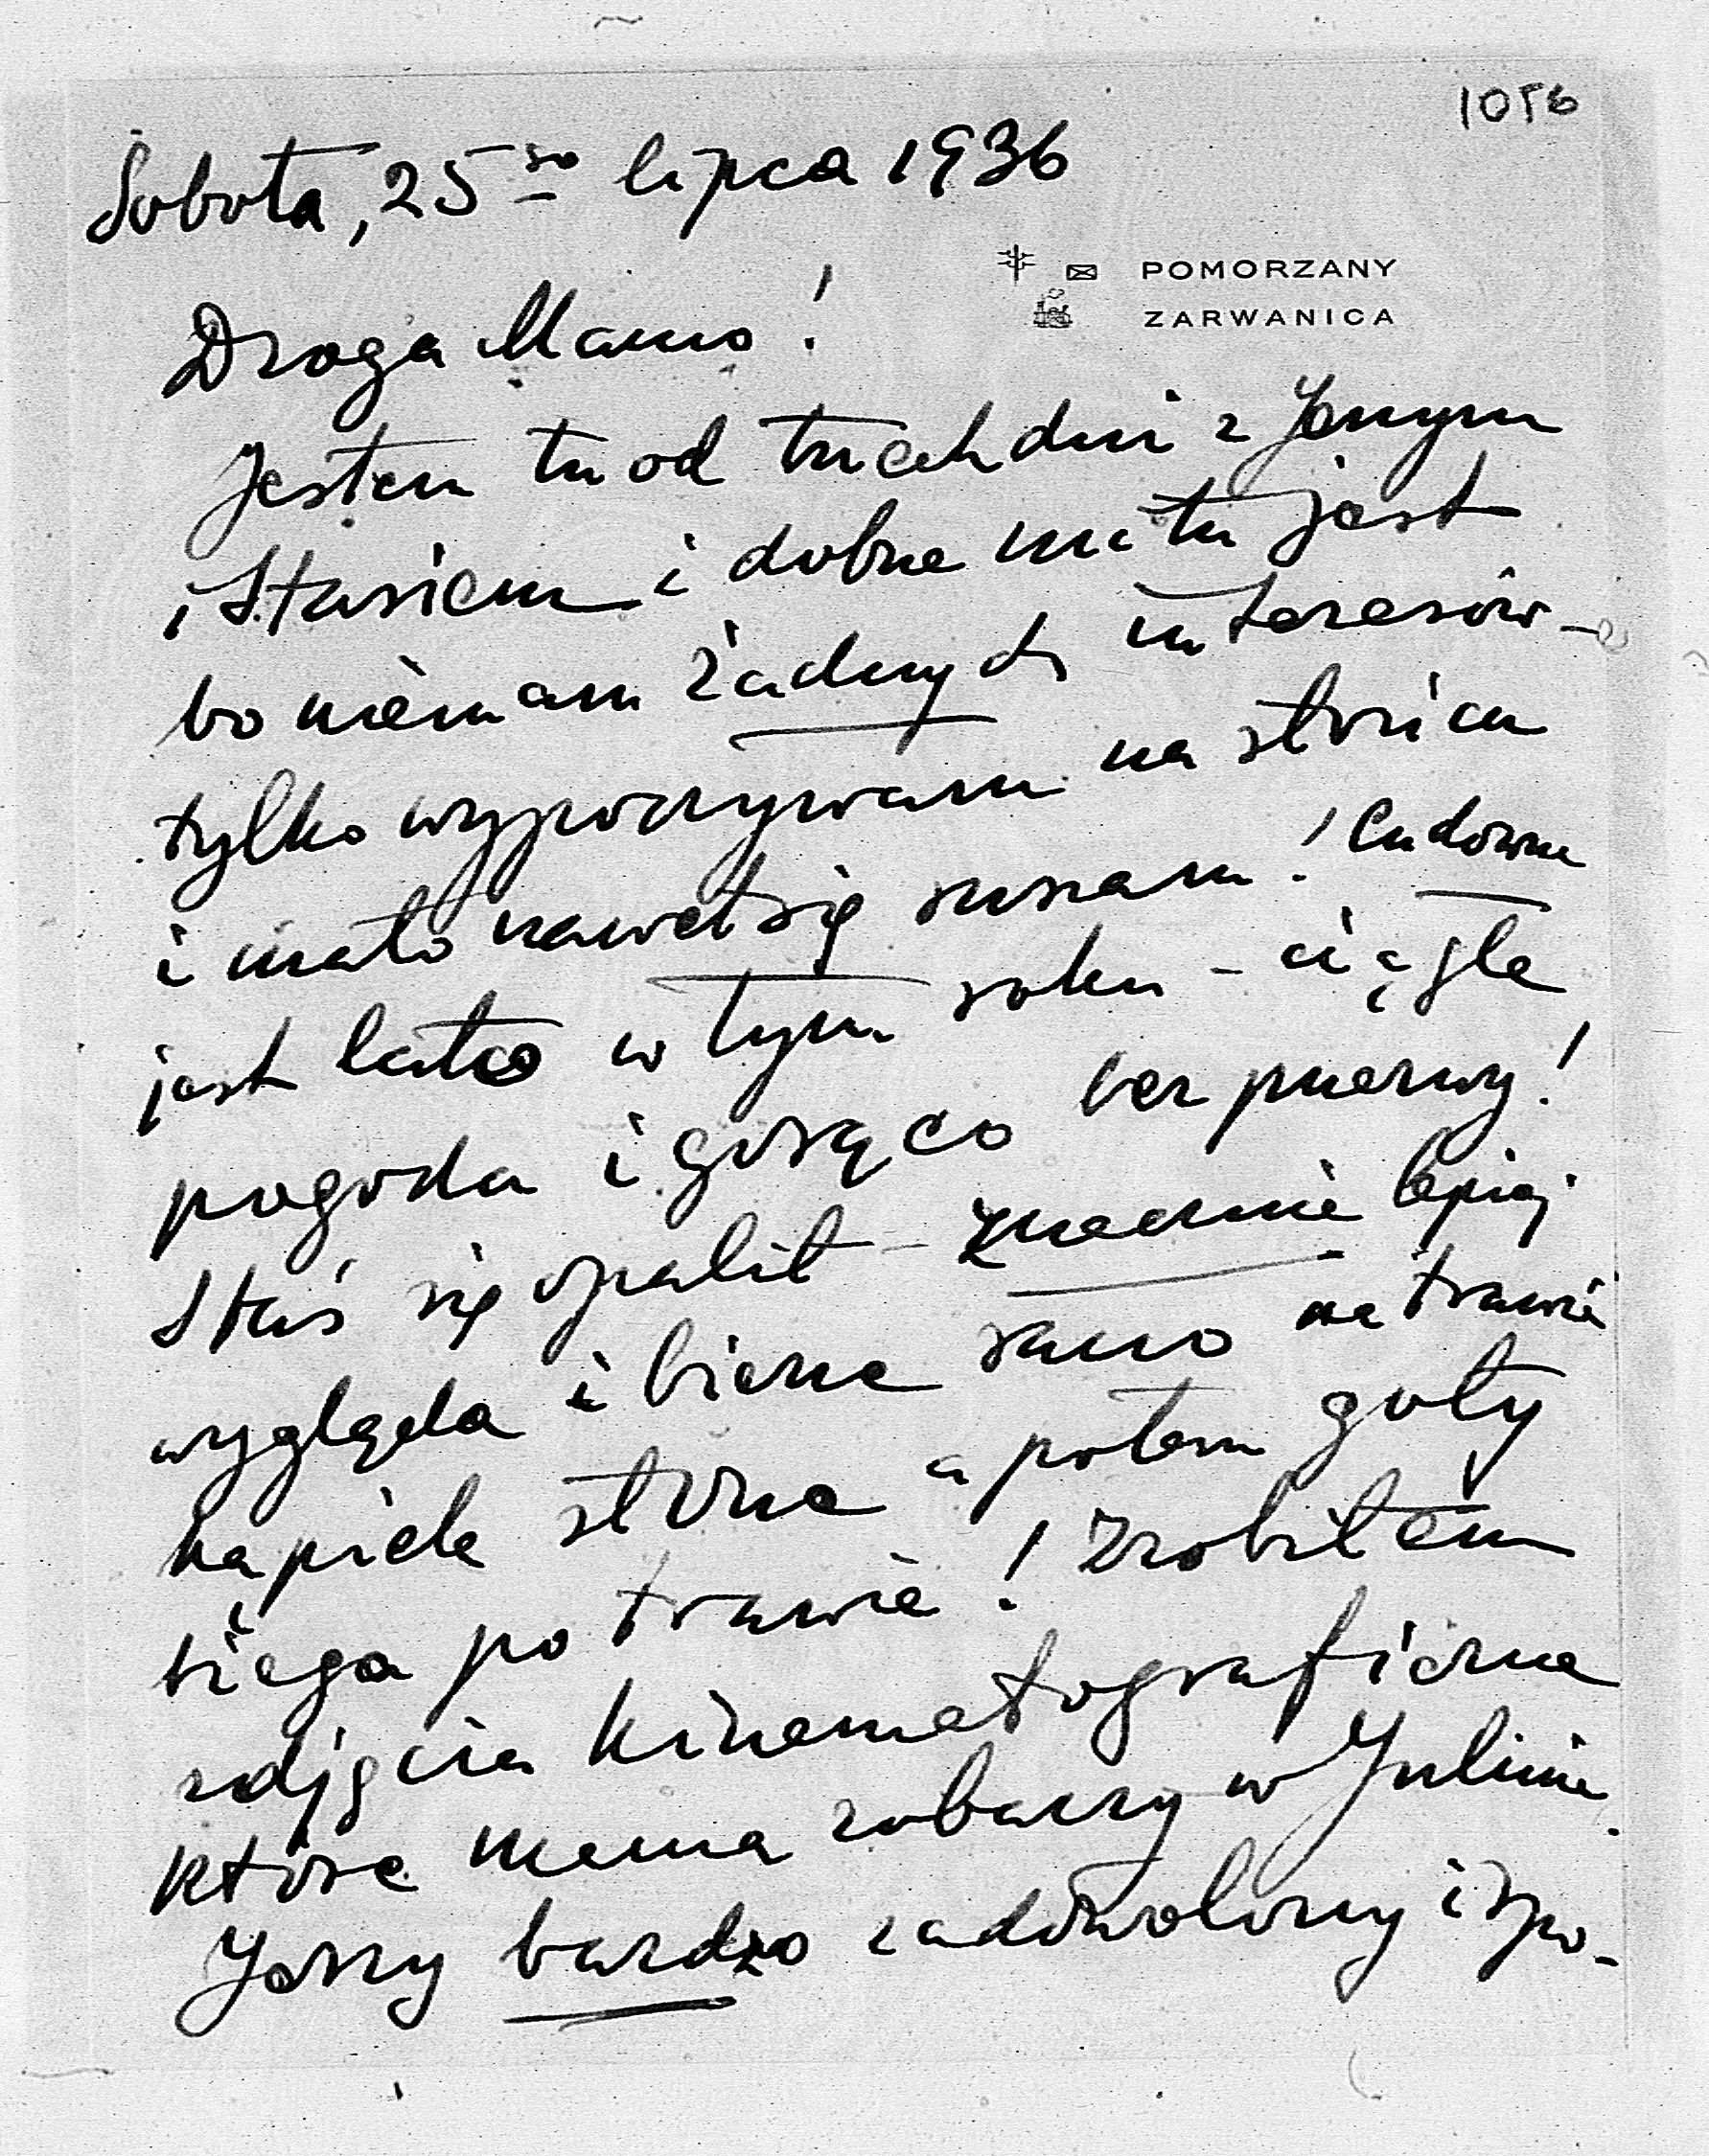 1056
Sobota, 25go lipca 1936
POMORZANY
ZARWANICA
Droga Mamo!
Jestem tu od trzech dni z Jerzym
i Stasiem i dobrze mi tu jest
bo niemam żadnych interesów -
tylko wypoczywam na słońcu
i mało nawet się ruszam! Cudowne
jest lato w tym roku - ciągle
pogoda i gorąco bez przerwy!
Staś się opalił - znacznie lepiej
wygląda i bierze rano na trawie
kąpiele słone a potem goły
biega po trawie! Zrobiłem
zdjęcia kinematograficzne
które mama zobaczy w Julinie.
Jerzy bardzo zadowolony i spo-